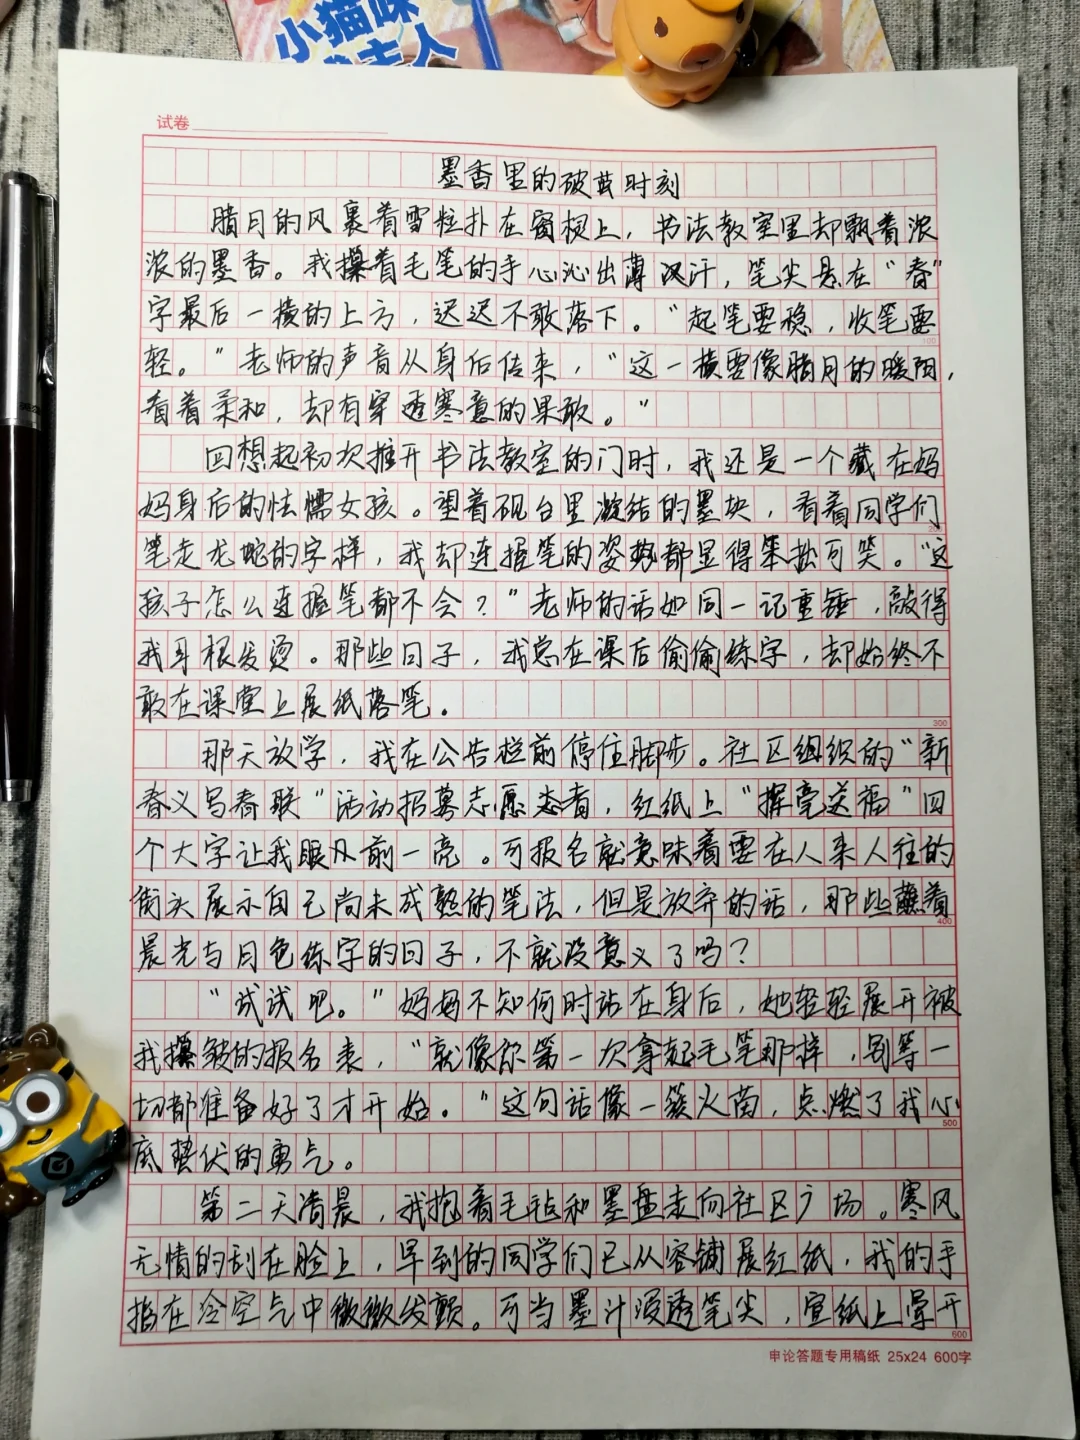 小猫咪
夫人
试卷
墨香里的破茧时刻
腊月的风裹着雪粒扑在窗棂上，书法教室里却飘着浓
浓的墨香。我攥着毛笔的手心沁出薄汗，笔尖悬在“春”
字最后一横的上方，迟迟不敢落下。“起笔要稳，收笔要
100
轻。”老师的声音从身后传来，“这一横要像腊月的暖阳，
看着柔和，却有穿透寒意的果敢。”
回想起初次推开书法教室的门时，我还是一个藏在妈
妈身后的怯懦女孩。望着砚台里凝结的墨块，看着同学们
200
笔走龙蛇的字样，我却连握笔的姿势都显得笨拙可笑。“这
孩子怎么连握笔都不会？”老师的话如同一记重锤，敲得
我耳根发烫。那些日子，我总在课后偷偷练字，却始终不
敢在课堂上展纸落笔。
300
那天放学，我在公告栏前停住脚步。社区组织的“新
春义写春联”活动招募志愿者，红纸上“挥毫送福”四
个大字让我眼风前一亮。可报名就意味着要在人来人往的
街头展示自己尚未成熟的笔法，但是放弃的话，那些蘸着
400
晨光与月色练字的日子，不就没意义了吗？
“试试吧。”妈妈不知何时站在身后，她轻轻展开被
我攥皱的报名表，“就像你第一次拿起毛笔那样，别等一
切都准备好了才开始。”这句话像一簇火苗，点燃了我心
500
底蛰伏的勇气。
第二天清晨，我抱着毛毡和墨盘走向社区广场。寒风
无情的刮在脸上，早到的同学们已从容铺展红纸，我的手
指在冷空气中微微发颤。可当墨汁浸透笔尖，宣纸上晕开
600
申论答题专用稿纸 25x24 600字